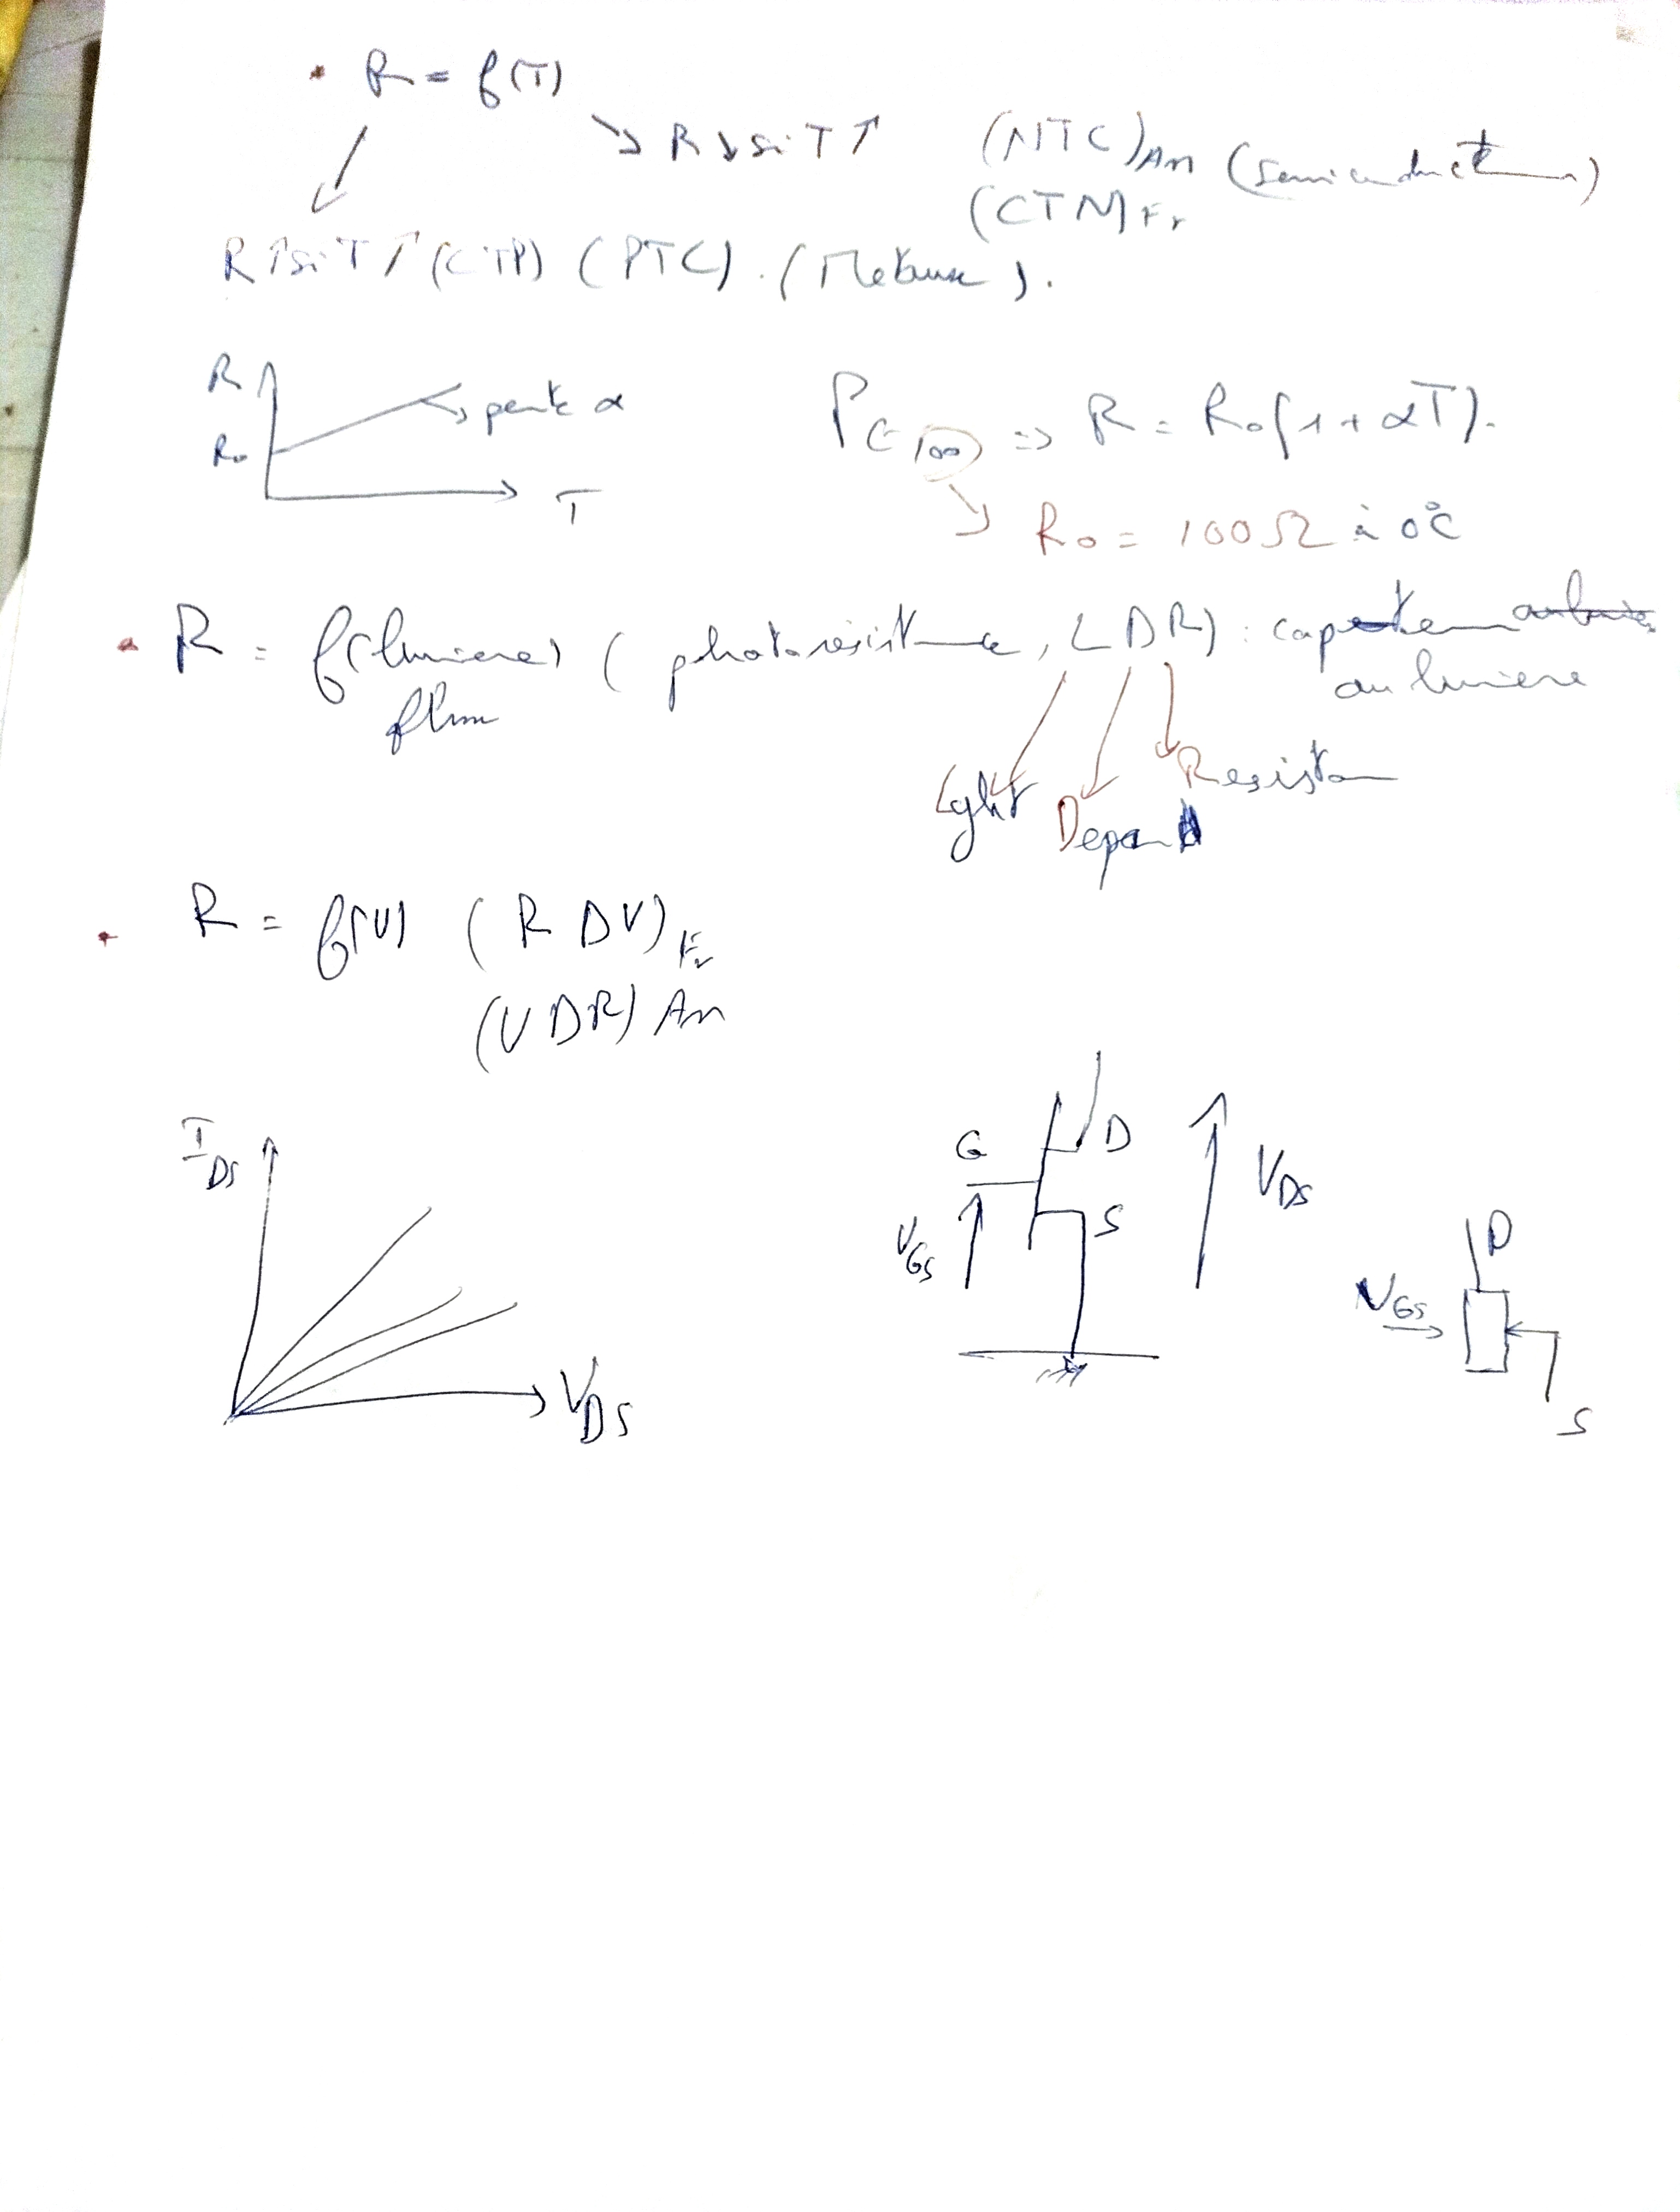 R = f(T)
R ↓ si T ↑ (NTC) An (semiconducteur)
(CTN) Fr
R ↑ si T ↑ (CTP) (PTC). (Métaux).
R
pente α
R₀
T
100 => R = R₀(1 + αT).
R₀ = 100Ω à 0°C
R = f(lumiere) (photoresistance, LDR) : capteur
au lumiere
Light Depend Resistor
R = f(V) (R DV) Fr
(VDR) An
I DS
V DS
G D
S
V GS
V DS
V GS
D
S